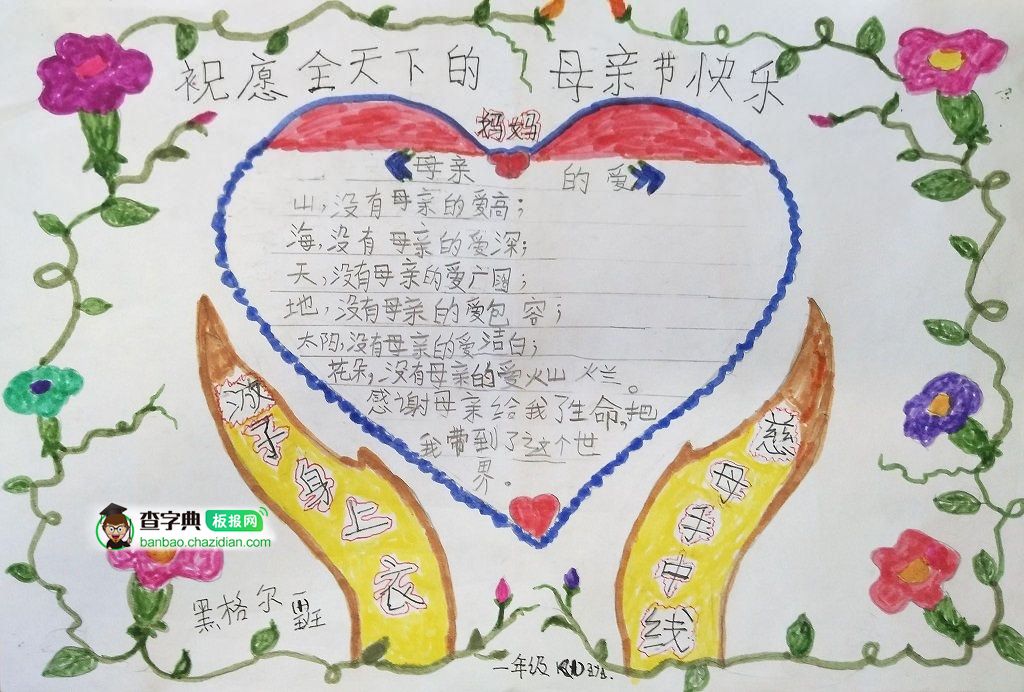 祝愿全天下的 妈妈 母亲节快乐
《母亲的爱》
山,没有母亲的爱高;
海,没有母亲的爱深;
天,没有母亲的爱广阔;
地,没有母亲的爱包容;
太阳,没有母亲的爱洁白;
花朵,没有母亲的爱火山 火兰。
感谢母亲给我了生命,把
我带到了这个世
界。
慈母手中线
游子身上衣
查字典 板报网
banbao.chazidian.com
黑格尔
一年级